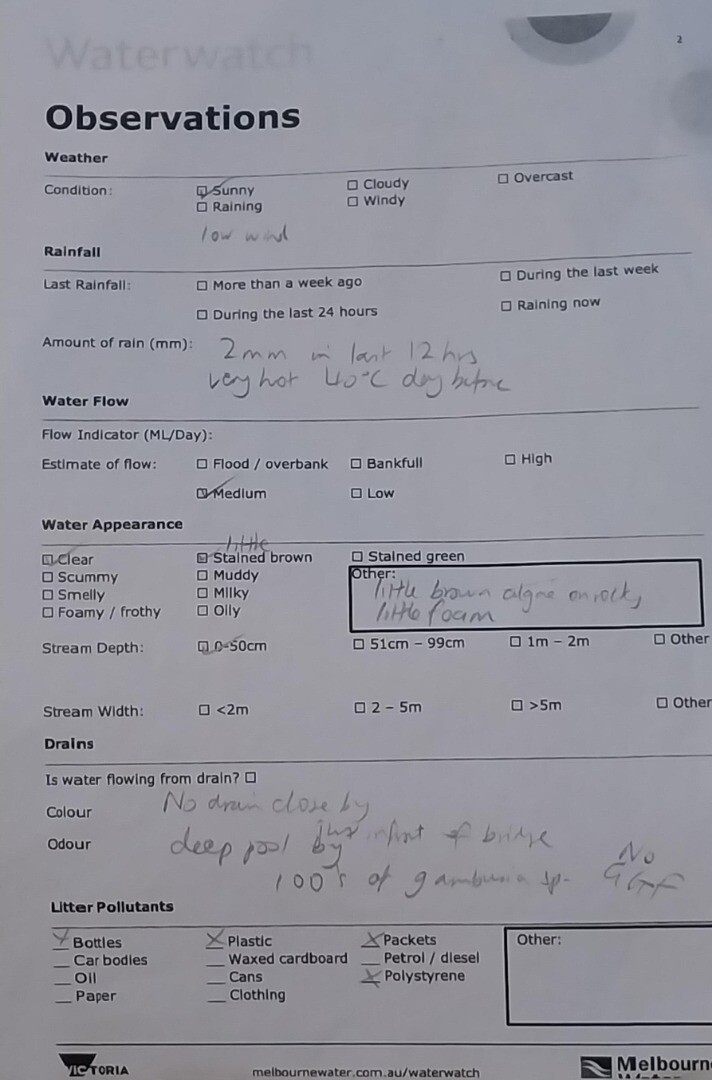 Waterwatch
2
Observations
Weather
Condition: ☑ Sunny ☐ Cloudy ☐ Overcast
☐ Raining ☐ Windy
low wind
Rainfall
Last Rainfall: ☐ More than a week ago ☐ During the last week
☐ During the last 24 hours ☐ Raining now
Amount of rain (mm): 2mm in last 12 hrs
very hot 40°C day before
Water Flow
Flow Indicator (ML/Day):
Estimate of flow: ☐ Flood / overbank ☐ Bankfull ☐ High
☑ Medium ☐ Low
Water Appearance
little
☑ Clear ☑ Stained brown ☐ Stained green
☐ Scummy ☐ Muddy Other:
☐ Smelly ☐ Milky little brown algae on rocks
☐ Foamy / frothy ☐ Oily little foam
Stream Depth: ☑ 0-50cm ☐ 51cm – 99cm ☐ 1m – 2m ☐ Other
Stream Width: ☐ <2m ☐ 2 – 5m ☐ >5m ☐ Other
Drains
Is water flowing from drain? ☐
Colour No drain close by
Odour deep pool by just infront of bridge
100's of gambusia sp. No GGF
Litter Pollutants
X Bottles X Plastic X Packets Other:
__ Car bodies __ Waxed cardboard __ Petrol / diesel
__ Oil __ Cans X Polystyrene
__ Paper __ Clothing
VICTORIA melbournewater.com.au/waterwatch Melbourne
Water